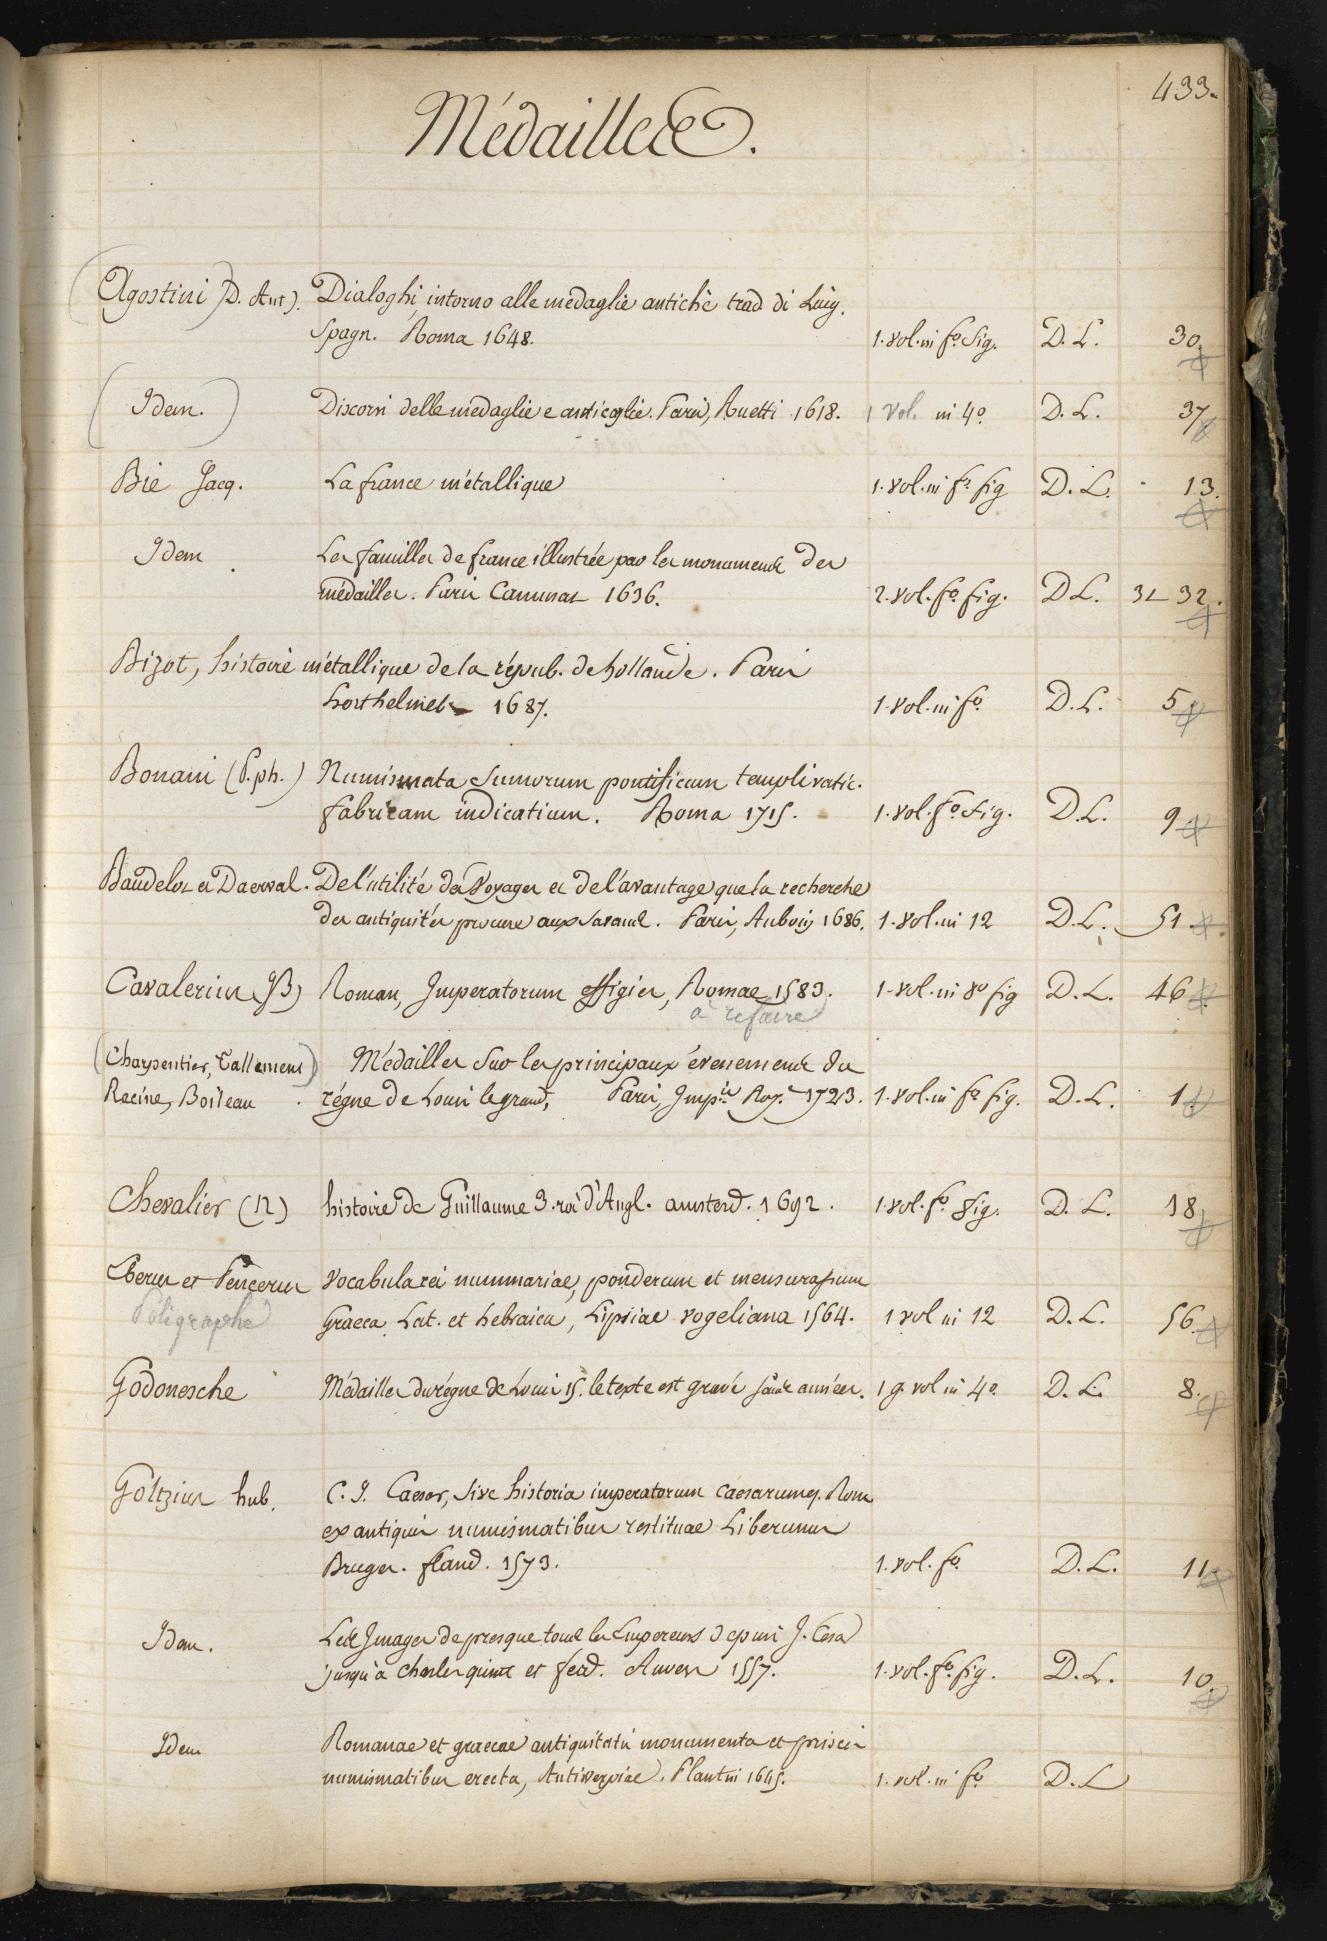 433.
Médailles.
Agostini (D. Ant). Dialoghi, intorno alle medaglie antiche trad di Luig.
Spagn. Roma 1648. 1. vol. in fo. fig. D. L. 30.
Idem. Discorsi delle medaglie e anticaglie. Paris, Ruetti 1618. 1 vol. in 4o. D. L. 37
Bie Jacq. La france métallique 1. vol. in fo. fig D. L. 13.
Idem Les familles de france illustrée par les monuments des
médailles. Paris Camusat 1636. 2. vol. fo. fig. D L. 31 32.
Bizot, histoire métallique de la répub. de hollande. Paris
horthelmels 1687. 1. vol. in fo. D. L. 5
Bonani (P. ph.) Numismata Sumorum pontificum templi vatic.
fabricam indicatium. Roma 1715. 1. vol. fo. fig. D. L. 9
Baudelot et Daerval. De l'utilité des Voyages et de l'avantage que la recherche
des antiquités procure aux savants. Paris, Auboin 1686. 1. vol. in 12 D. L. 51
Cavalerius (JB) Roman, Imperatorum effigies, Romae 1583. 1. vol. in 8o fig D. L. 46
à refaire
(Charpentier, Tallemens) Médailles Sur les principaux évenements du
Racine, Boileau. régne de Louis le grand, Paris, Imp.ie Roy.e 1723. 1. vol. in fo. fig. D. L. 1
Chevalier (N) histoire de Guillaume 3. roi d'Angl. amsterd. 1692. 1. vol. fo. fig. D. L. 18
Eberus et Peucerus Vocabula rei nummariae, ponderum et mensurarum
Poligraphe Graeca Lat. et hebraica, Lipsiae vogeliana 1564. 1 vol in 12 D. L. 56.
Godonesche Médailles du régne de Louis 15. le texte est gravé sans années. 1 g. vol in 4o D. L. 8.
Goltzius hub. C. J. Caesar, Sive historia imperatorum caesarumq. Rom
ex antiquis numismatibus restitutae Liber unus
Bruges. fland. 1573. 1. vol. fo. D. L. 11.
Idem. Les Images de presque tous les Empereurs depuis J. Cesar
jusqu'à Charles quint et ferd. Anvers 1557. 1. vol. fo. fig. D. L. 10.
Idem Romanae et graecae antiquitatis monumenta et priscis
numismatibus erecta, Antiverpiae. Plantin 1645. 1. vol. in fo. D. L